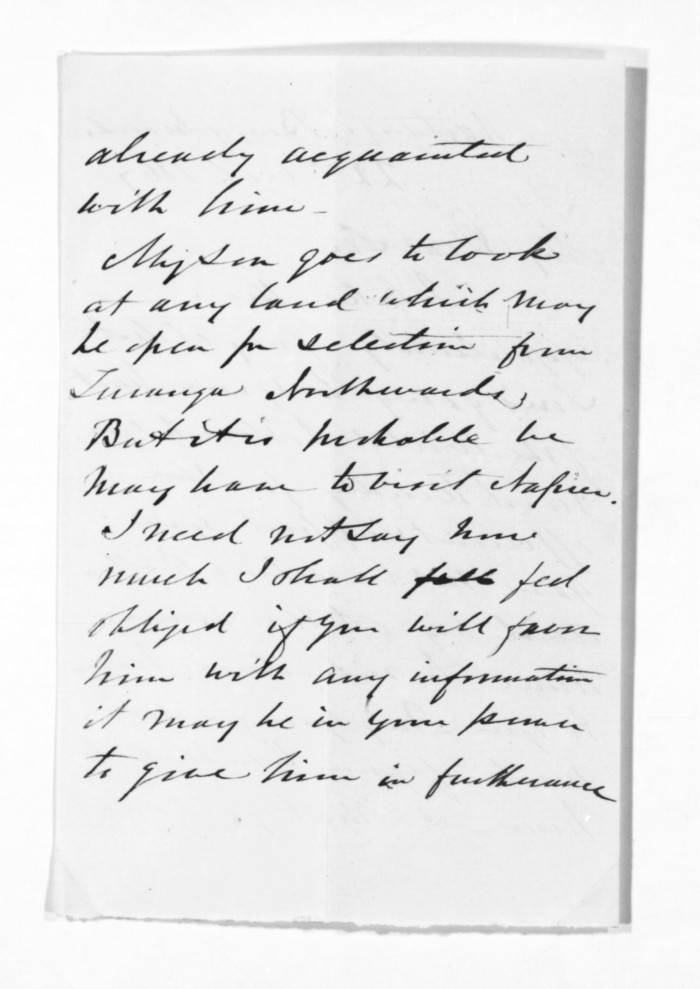 already acquainted
with him -
My Son goes to look
at any land which may
be open for selection from
Turanga Northwards;
But it is probable he
may have to visit Napier.
I need not say how
much I shall feel feel
obliged if you will favor
him with any information
it may be in your power
to give him in furtherance